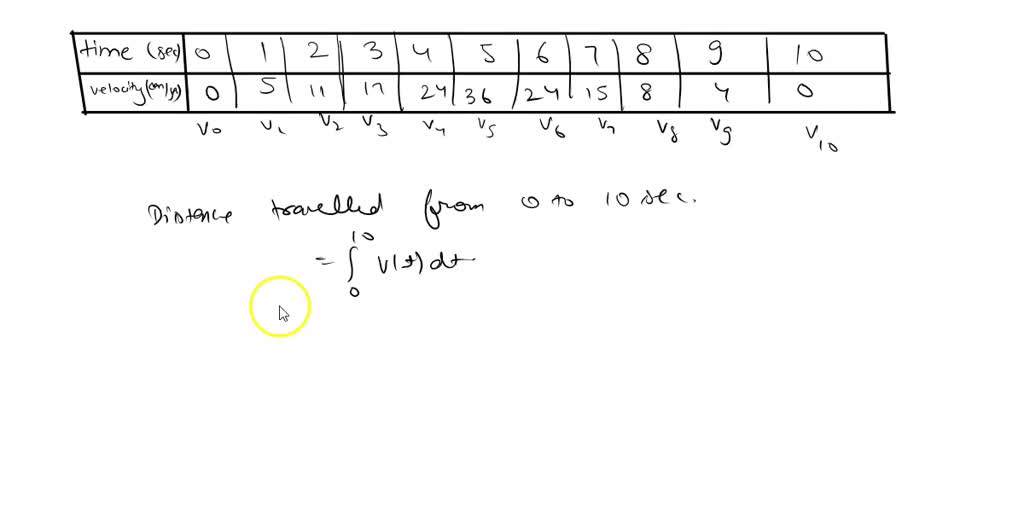 time (sec) 0 1 2 3 4 5 6 7 8 9 10
velocity (cm/s) 0 5 11 17 24 36 24 15 8 4 0
V0 V1 V2 V3 V4 V5 V6 V7 V8 V9 V10
Distance travelled from 0 to 10 sec.
= ∫₀¹⁰ V(t) dt